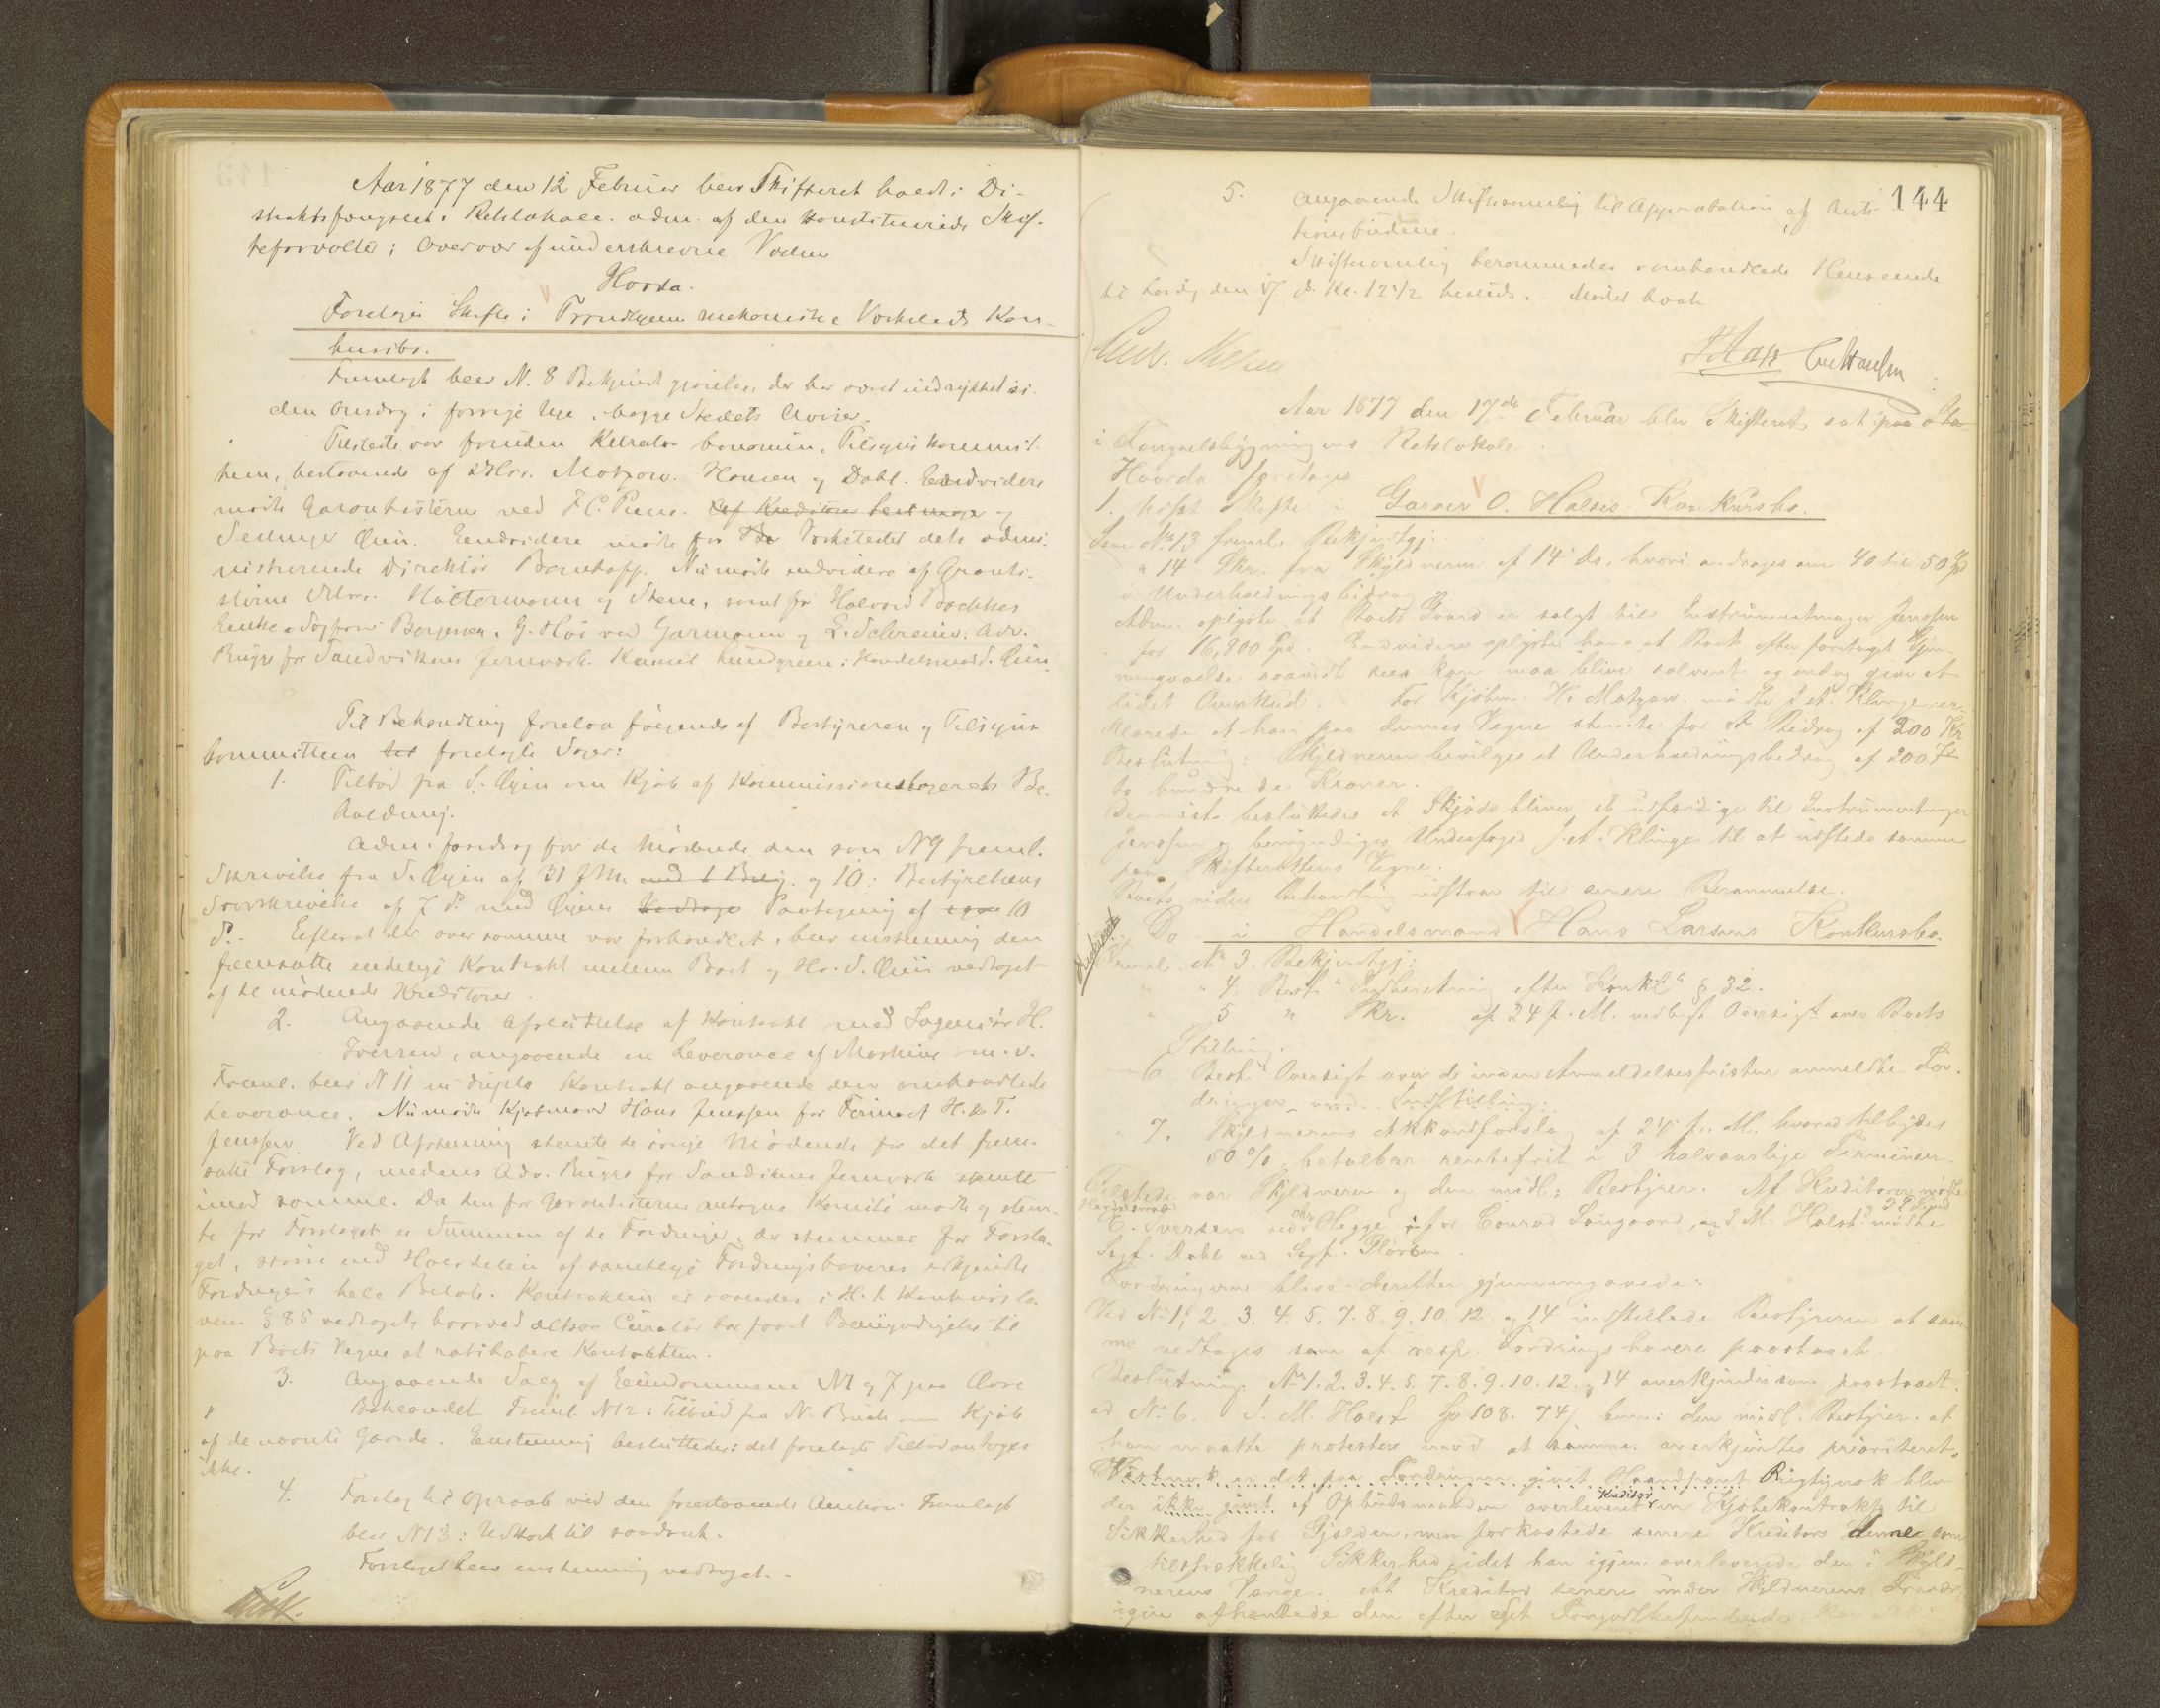 Aar 1877 den 12 Februar blev Skifteret holdt i Di-
striktsfængslets Retslokale. adm. af den konstituerede Skif-
teforvalter; Overvær af underskrevne Vidner
Hvorda.
Foretoges Skifte i Trondhjems mekaniske Værksteds Kon-
kursbo.
Fremlagt blev N. 8 Bekjendtgjørelse, der har været indrykket i
den Onsdag i forrige Uge i begge Stedets Aviser.
Tilstede var foruden Kurator bonorum, Tilsynskommit-
teen, bestaaende af DHrr. Matzow. Hansen og Dahl. Endvidere
mødte Garantisterne ved H.C. Af Kreditorer
Endvidere mødte for Værkstedet dets admi-
nistrerende Direktør Nu mødte endvidere af Garanti-
sterne DHrr. Hüttermann og Steen, samt for Halvord Bachkes
Enke Sagfører G. Høi ved Garmann og Adv.
Bugge for Sandvikens Jernværk. Lundgreen: Handelsmand S.
Til Behandling forelaa følgende af Bestyreren og Tilsyns
kommitteen til forelagte Sager:
1. Tilbud fra S. om Kjøb af Kommissionslagerets Be-
holdning.
Adm. foredrog for de Mødende den som N 9 freml.
Skrivelse fra S. af 31 f. M. med 1 Bilag og 10: Bestyrelsens
Svarskrivelse af 7 d. med Paategning af 10
d.- Efterat der over samme var forhandlet, blev enstemmig den
fremsatte endelige Kontrakt mellem Boet og Hr. S. vedtaget
af de mødende Kreditorer.
2. Angaaende Afsluttelse af Kontrakt med Ingeniør H.
Iversen, angaaende en Leverance af Maskiner m.v.
Freml. blev N 11 in duplo Kontrakt angaaende den omhandlede
Leverance. Nu mødte Kjøbmand Hans Jenssen for Firmaet H. & T.
Jenssen. Ved Afstemning stemte de øvrige Mødende for det frem-
satte Forslag, medens Adv. Bugge for Sandvikens Jernværk stemte
imod samme. Da den for Garantisterne antagne Komité mødte og stem-
te for Forslaget er Summen af de Fordringer, der stemmer for Forsla-
get, større end Halvdelen af samtlige Fordringshaveres erkjendte
Fordringers hele Beløb. Kontrakten er saaledes i H. t. Konkurslo-
vens § 85 vedtaget, hvorved altsaa Curator har faaet Bemyndigelse til
paa Boets Vegne at ratihabere Kontrakten.
3. Angaaende Salg af Eiendommene N 1 og 7 paa Øvre
Bakklandet. Freml. N 12: Tilbud fra N. Buch om Kjøb
af de nævnte Gaarde. Enstemmig besluttedes: det forelagte Tilbud antages
ikke.
4. Forslag til Opraab ved den forestaaende Auktion. Fremlagt
blev N 13: Udkast til saadant.
Forslaget blev enstemmig vedtaget.-
144
5. Angaaende Skiftesamling til Approbation af Auk-
tionsbudene.
Skiftesamling berammedes i omhandlede Henseende
til Lørdag den 17 d. Kl. 12 1/2 Mødet hævet
Aar 1877 den 17de Februar blev Skifteret sat
i Fængselsbygningens Retslokale
Hvorda foretages
1. Skifte i Garver O. Halsès Konkursbo.
Som No 13 freml. Bekjendtgj:
" 14 Skr. fra Skyldneren af 14' ds. hvori andrages om 40 til 50
i Underholdningsbidrag
Adm. oplyste at Boets Gaard er solgt til Instrumentmager Jenssen
for 16,800 Endvidere oplyste han at Boet efter foretaget Gjen-
nemgaaelse saavidt sees kan maa blive solvent og endog give et
lidet Overskud. For Kjøbm. H. Matzow mødte Klinge, er-
klærede at han paa dennes Vegne stemte for et Bidrag af 200 Kr
Beslutning: Skyldneren bevilges et Underholdningsbidrag af 200 Kr
to hundrede Kroner.
Dernæst besluttedes at Skjøde bliver at udfærdige til Instrumentmager
Jenssen og bemyndiges Underfoged Klinge til at udstede samme
paa Skifterettens Vegne.
Boets videre Behandling udstaar til senere Berammelse.
Do i Handelsmand Hans Larsens Konkursbo.
Freml. No 3. Bekjendtgj:
" " 4. Best. Indberetning efter Konkl. § 32.
" 5 " Skr. af 24 f. M. vedlagt Oversigt over Boets
Stilling.
6 Best. Oversigt over de inden Anmeldelsesfristen anmeldte For-
dringer med Indstilling:
" 7. Skyldnerens Akkordforslag af 24' f. M. hvorved tilbydes
50 % betalbar rentefrit i 3 halvaarlige Terminer.
Tilstede var Skyldneren og den midl: Bestyrer. Af Kreditorer mødte
C. Iversen ved Hegge for Conrad Langaard, og J. M. Holst: mødte
Sagf. Dahl ved Sagf.
Fordringerne bleve derefter gjennemgaaede:
Ved No 1, 2. 3. 4. 5. 7. 8. 9. 10 12. og 14 indstillede Bestyreren at sam-
me vedtages som af resp. Fordringshavere paastaaet.
Beslutning. No 1. 2. 3. 4. 5. 7. 8. 9. 10. 12. og 14 anerkjendes som paastaaet.
ad No 6. J. M. Holst Sp 508. 74 den midl. Bestyrer. at
han maatte protestere mod at samme anerkjendtes prioriteret.
Vistnok er det paa Fordringen givet Haandpant Rigtignok blev
der ikke givet af Opbudsmanden overleveret Kreditor en Kjøbekontrakt til
Sikkerhed for Gjælden, men forkastede senere Kreditor denne som
tilstrækkelig Sikkerhed, idet han igjen overleverede den i Skyld-
nerens Værge. At Kreditor senere under Skyldnerens Fravær
igjen afhentede den efter